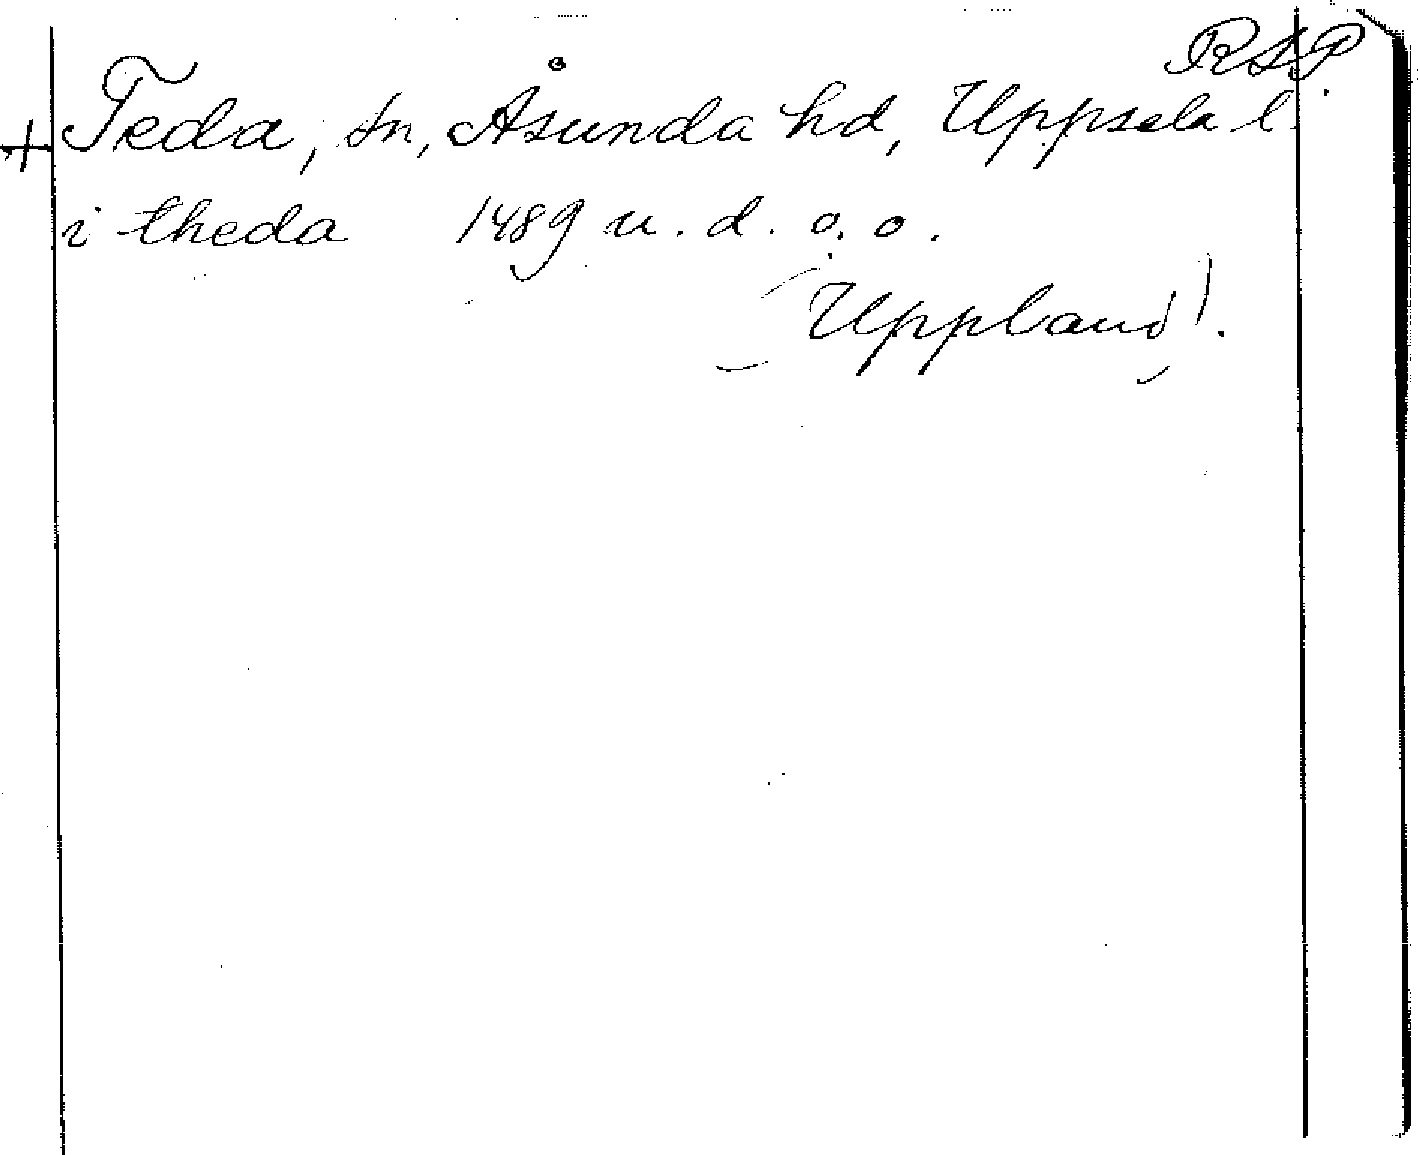 RAP.
+ Teda, sn, Åsunda hd, Uppsala l.
i theda 1489 u. d. o. o.
(Uppland).